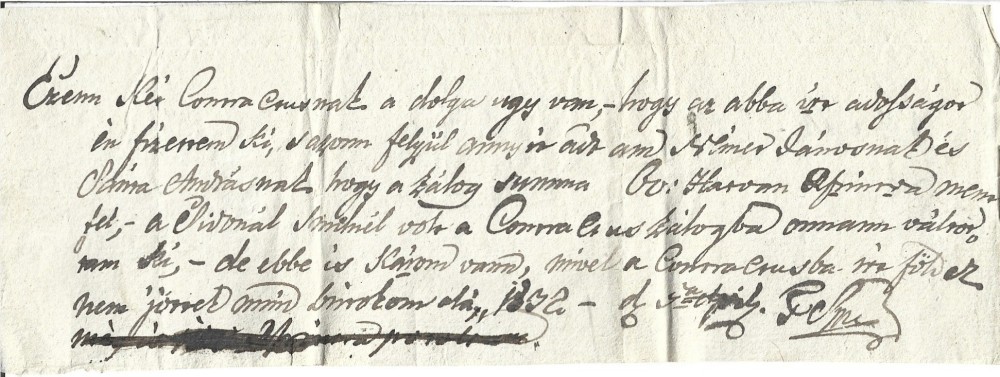 Ezenn Két Contractusnak a dolga ugy van, - hogy az abba irt adósságot
én fizettem ki, sazonn felyül annyit adtam Német Jánosnak és
Pálna Andrásnak hogy a zálog summa 60: Hatvan Rforintra ment
fel, - a Zsidónál volt a Contractus Zálogba onnann váltot-
tam ki, - de ebbe is Károm vann, mivel a Contractusba irt föld ez
nem jöttek mind birtokom alá, 1832. - d 5ta April.